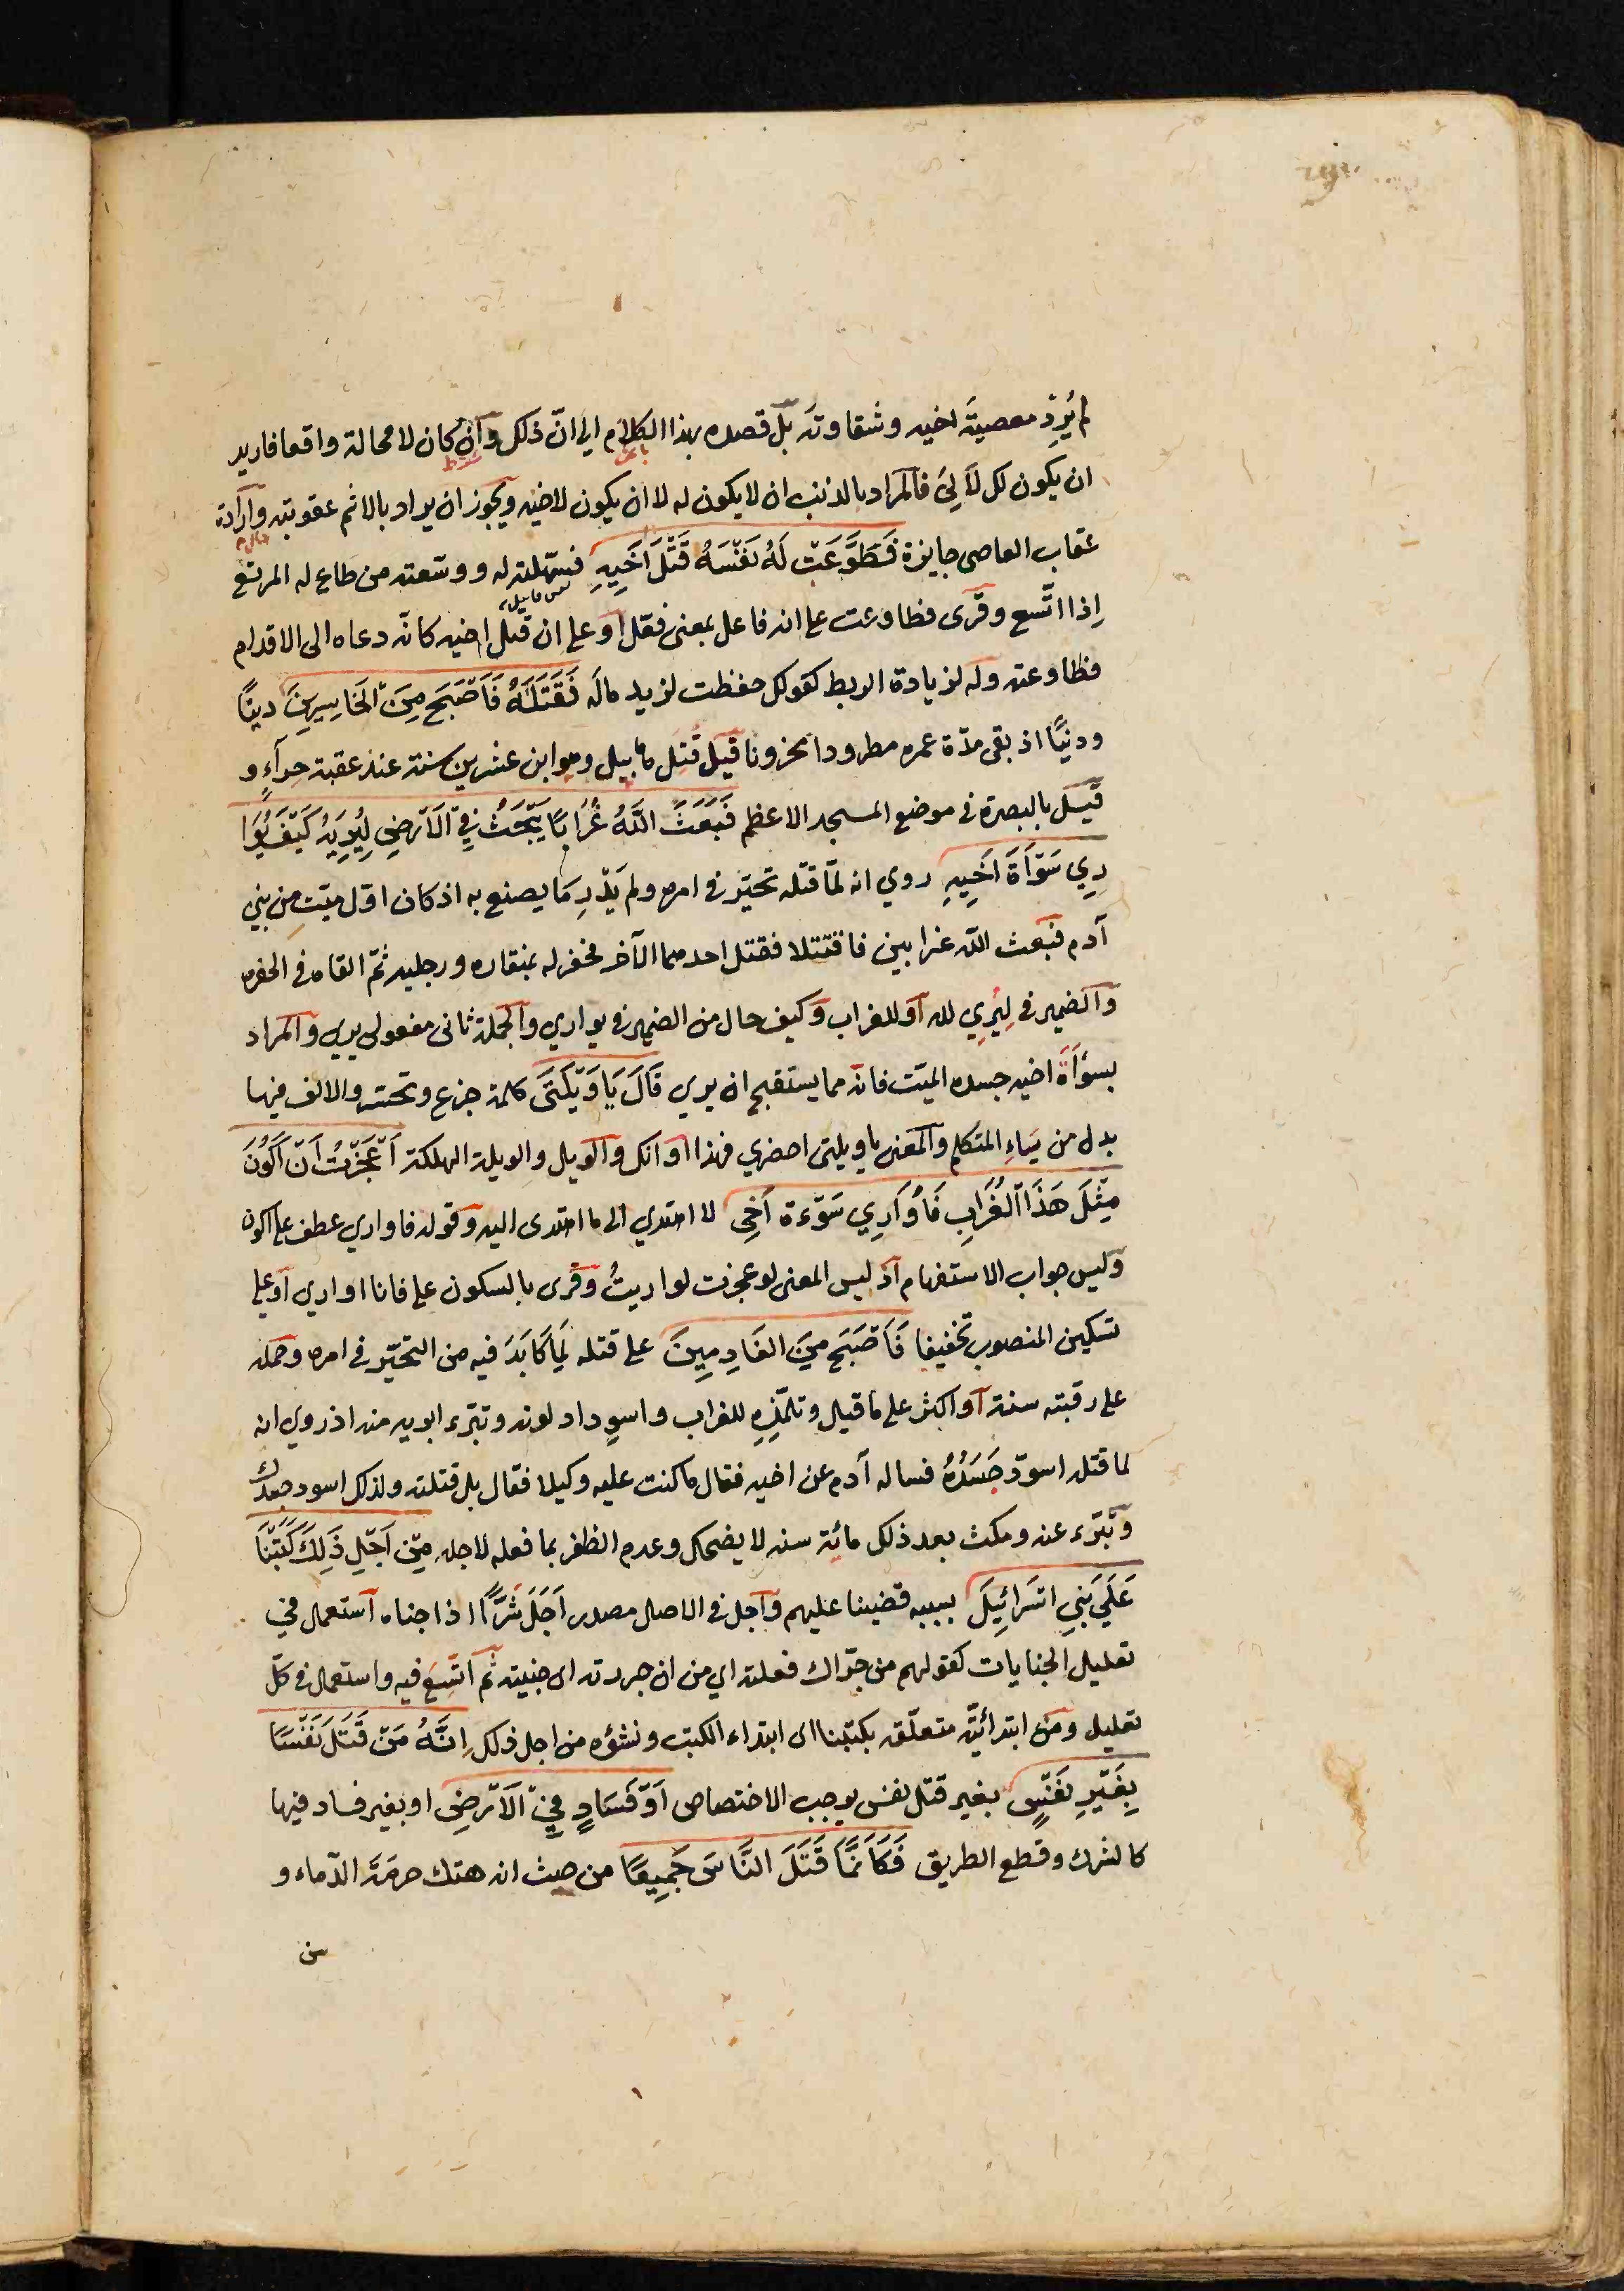 لم يُرِدْ معصيةَ اخيه وشقاوته بل قصده بهذا الكلام الى انّ ذلك وان كان لا محالة واقعا فاريد
ان يكون لك لا لِيْ فالمراد بالذنب ان لا يكون له لا ان يكون لاخيه ويجوز ان يراد بالاثم عقوبته وارادة
عقاب العاصى جايزة فَطَوَّعَتْ لَهُ نَفْسُهُ قَتْلَ اَخِيهِ فسهّلته له ووسّعته من طاع له المرتع
اِذا اتَّسع وقرى فطاوعت على انه فاعل بمعنى فعّل او على ان قتل اخيه كانّه دعاه الى الاقدام
فطاوعته وله لزيادة الربط كقولك حفظت لزيد ماله فَقَتَلَهُ فَاَصْبَحَ مِنَ الْخَاسِرِينَ دينًا
ودنيًا اذ بقى مدّة عمره مطرودا محزونا قيل قُتِل هابيل وهو ابن عشرين سنة عند عقبة حِراءٍ و
قيل بالبصرة فى موضع المسجد الاعظم فَبَعَثَ اللّٰهُ غُرَابًا يَبْحَثُ فِي الْاَرْضِ لِيُرِيَهُ كَيْفَ يُوَا
رِي سَوْاَةَ اَخِيهِ روي انه لمّا قتله تحيّر فى امره ولم يَدْرِ مَا يصنع به اذ كان اوّل ميّتِ من بني
آدم فبعث اللّه غرابين فاقتتلا فقتل احدهما الآخر فحفر له بمنقاره ورجليه ثمّ القاه فى الحفره
والضمير فى لِيُرِي لله او للغراب وكيف حال من الضمير فى يواري والجملة ثانى مفعولى يرى والمراد
بسَوْاَةَ اخيه جسده الميّت فانه مما يستقبح ان يرى قَالَ يَا وَيْلَتَى كلمة جزع وتحسّر والالف فيها
بدل من يَاءِ المتكلم والمعنى يا ويلتى احضري فهذا اوانك والويل والويلة الهلكة اَعَجَزْتُ اَنْ اَكُونَ
مِثْلَ هَذَا الْغُرَابِ فَاُوَارِي سَوْءَةَ اَخِى لا اهتدي الى ما اهتدى اليه وقوله فاواري عطف على اكون
وليس جواب الاستفهام اذ ليس المعنى لو عجزت لواريتُ وقُرى بالسكون على فانا اواري او على
تسكين المنصوب تخفيفا فَاَصْبَحَ مِنَ النَادِمِينَ على قتله لِمَا كَابَدَ فيه من التحيّر فى امره وحمله
على رقبته سنة او اكثر على ما قيل وتلمّذِهِ للغراب واسوِداد لونه وتبرّء ابويه منه اذ روي انه
لما قتله اسودّ جَسَدُهُ فساله آدم عن اخيه فقال ما كنت عليه وكيلا فقال بل قتلته ولذلك اسود جسدك
وتبرّء عنه ومكث بعد ذلك مائة سنه لا يضحك وعدم الظفر بما فعله لاجله مِنْ اَجْلِ ذَلِكَ كَتَبْنَا
عَلَى بَنِي اسْرَائِيلَ بسببه قضينا عليهم واجل فى الاصل مصدر اَجَلَ شَرًّا اذا جناه استعمل في
تعليل الجنايات كقولهم من جرّاك فعلته اي من ان جررته اى جنيته ثم اتّسِعَ فيه واستعمل فى كلّ
تعليل ومن ابتدائيّة متعلّقه بكتبنا اى ابتداء الكتب ونشؤه من اجل ذلك اِنَّهُ مَنْ قَتَلَ نَفْسًا
بِغَيْرِ نَفْسٍ بغير قتل نفس يوجب الاختصاص اَوْ فَسَادٍ فِي الْاَرْضِ او بغير فساد فيها
كالشرك وقطع الطريق فَكَاَنَّمَا قَتَلَ النَّاسَ جَمِيعًا من حيث انه هتك حرمَةَ الدّماء و
سن